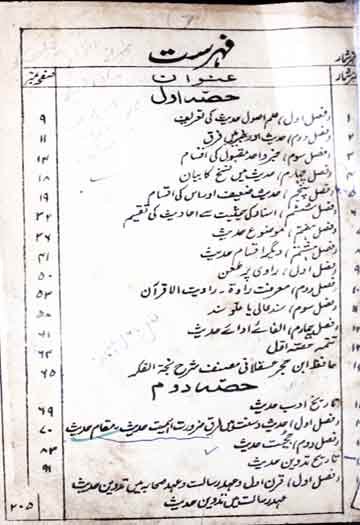 فہرست
نمبر شمار عنوان صفحہ نمبر
حصہ اول
۱ (فصل اول) علم اصول حدیث کی تعریف ۹
(فصل دوم) حدیث اور میں فرق ۱۱
(فصل سوم) خبر واحد مقبول کی اقسام ۱۴
(فصل چہارم) حدیث میں نسخ کا بیان ۱۸
۵ (فصل پنجم) حدیث ضعیف اور اس کی اقسام ۱۹
(فصل ششم) اسناد کی حیثیت سے احادیث کی تقسیم ۳۲
(فصل ہفتم) موضوع حدیث ۳۶
(فصل ہشتم) دیگر اقسام حدیث ۴۱
(فصل اول) راوی پر طعن ۵۰
(فصل دوم) معرفت رواۃ - روایت الاقران ۵۳
(فصل سوم) سند عالی یا علو سند
(فصل چہارم) الفاظ ادائے حدیث ۶۱
تتمہ حصہ اول ۶۴
حافظ ابن حجر عسقلانی مصنف شرح نخبۃ الفکر ۶۵
حصہ دوم
تاریخ ادب حدیث ۶۹
(فصل اول) حدیث و سنت میں فرق ضرورت اہمیت حدیث، مقام حدیث ۷۰
(فصل دوم) حجیت حدیث ۸۳
تاریخ تدوین حدیث ۹۱
(فصل اول) قرن اول و عہد رسالت و عہد صحابہ میں تدوین حدیث
عہد رسالت میں تدوین حدیث ۲۰۵